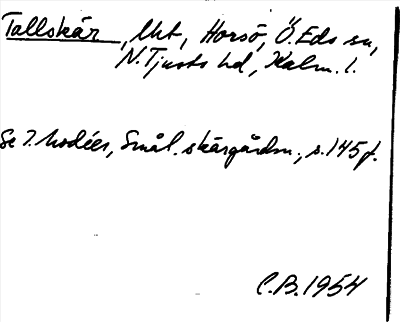 Tallskär, lht, Horsö, Ö. Eds sn,
N. Tjusts hd, Kalm. l.
Se I. Modéer, Smål. skärgårdsn., s. 145 f.
C.B. 1954